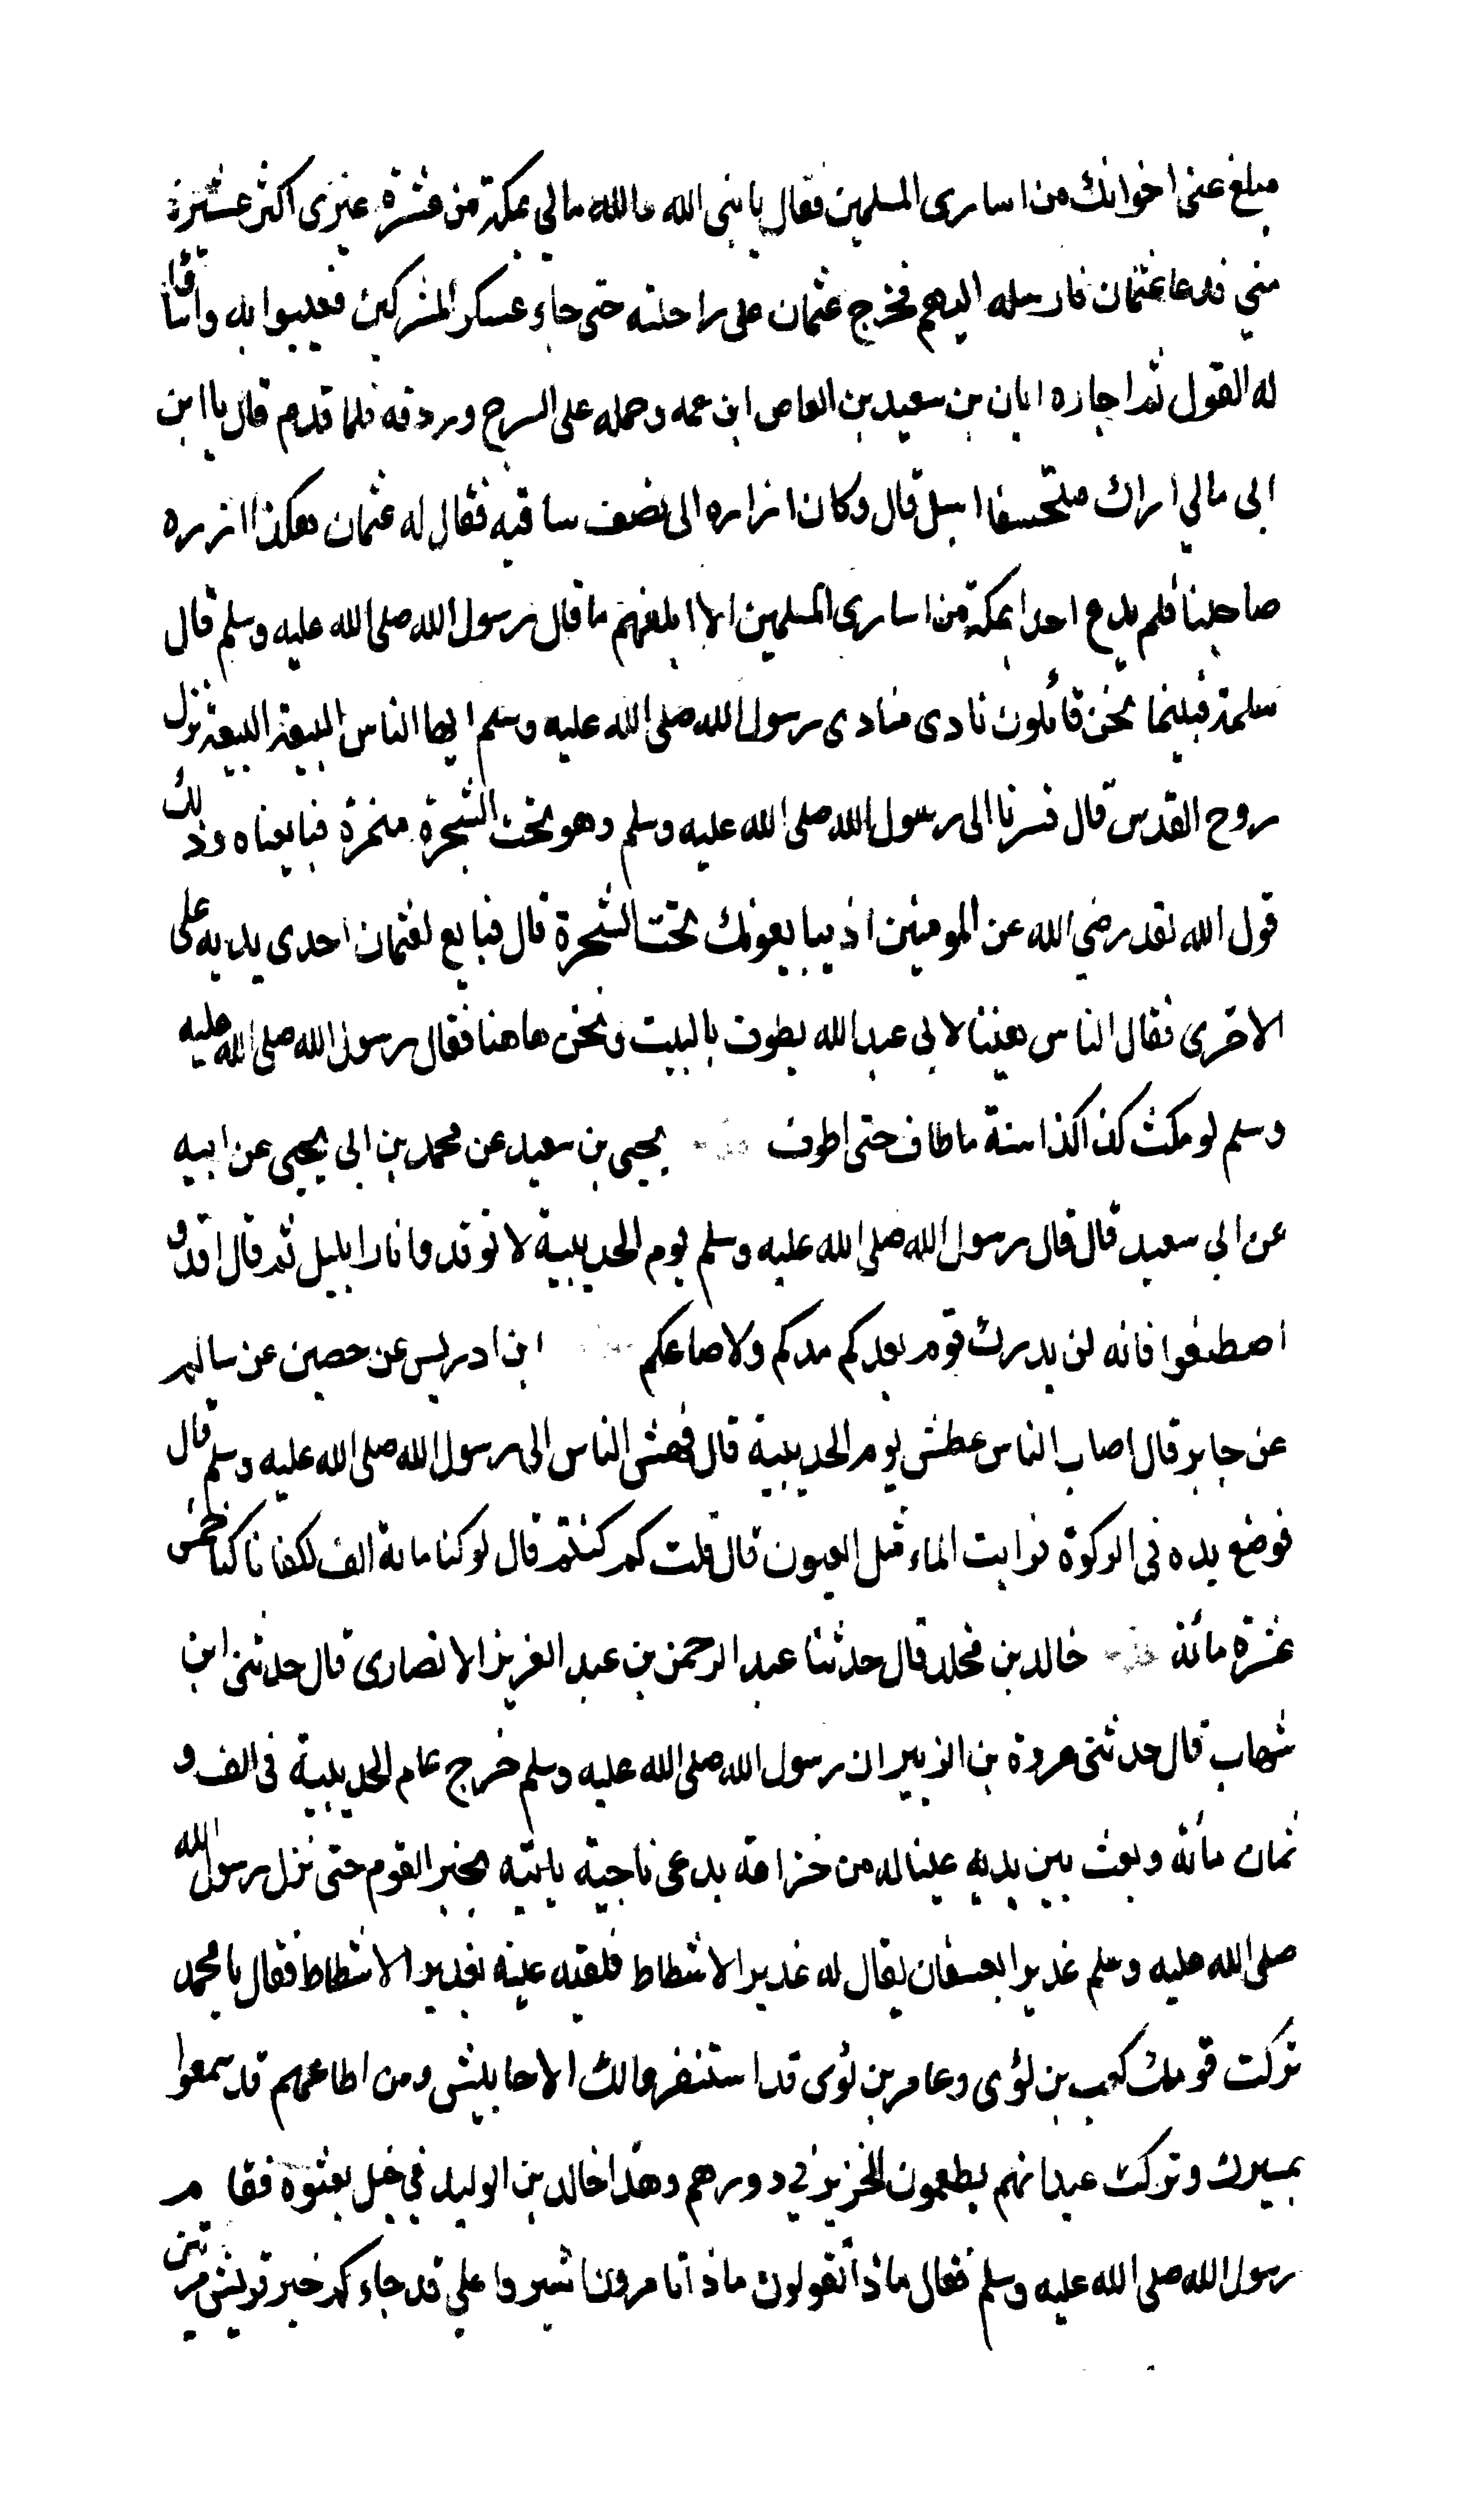 مبلغ عني اخوانك من اسارى المسلمين فقال يا نبي الله والله مالي بمكة من عشيرة غيري اكثر عشيرة
مني فدعا عثمان فارسله اليهم فخرج عثمان على راحلته حتى جاء عسكر المشركين فعيبوا به واساؤا
له القول ثم اجاره ابان بن سعيد بن العاص ابن عمه وحمله على السرج وردفه فلما قدم قال يا ابن
ابي مالي اراك متحسفا اسبل قال وكان ازاره الى نصف ساقيه فقال له عثمان هكذا ازره
صاحبنا فلم يدع احدا بمكة من اسارى المسلمين الا ابلغهم ما قال رسول الله صلى الله عليه وسلم قال
سلمة فبينما نحن قائلون نادى منادى رسول الله صلى الله عليه وسلم ايها الناس البيعة البيعة نزل
روح القدس قال فسرنا الى رسول الله صلى الله عليه وسلم وهو تحت الشجرة سمرة فبايعناه وذلك
قول الله لقد رضي الله عن المومنين اذ يبايعونك تحت الشجرة قال فبايع لعثمان احدى يديه على
الاخرى فقال الناس هنيئا لابي عبد الله يطوف بالبيت ونحن هاهنا فقال رسول الله صلى الله عليه
وسلم لو مكث كذا كذا سنة ما طاف حتى اطوف يحيى بن سعيد عن محمد بن ابي يحيى عن ابيه
عن ابي سعيد قال قال رسول الله صلى الله عليه وسلم يوم الحديبية لا توقدوا نارا بليل ثم قال اوقدوا
اصطنعوا فانه لن يدرك قوم بعدكم مدكم ولا صاعكم ابن ادريس عن حصين عن سالم
عن جابر قال اصاب الناس عطش يوم الحديبية قال فهش الناس الى رسول الله صلى الله عليه وسلم قال
فوضع يده في الركوة فرايت الماء مثل العيون قال قلت كم كنتم قال لو كنا مائة الف لكفانا كنا خمس
عشرة مائة خالد بن مخلد قال حدثنا عبد الرحمن بن عبد العزيز الانصارى قال حدثني ابن
شهاب قال حدثني عروة بن الزبير ان رسول الله صلى الله عليه وسلم خرج عام الحديبية في الف و
ثمان مائة وبعث بين يديه عينا له من خزاعة يدعى ناجية ياتيه بخبر القوم حتى نزل رسول الله
صلى الله عليه وسلم غديرا بعسفان يقال له غدير الاشطاط فلقيه عينه بغدير الاشطاط فقال يا محمد
تركت قومك كعب بن لؤى وعامر بن لؤى قد استنفروا لك الاحابيش ومن اطاعهم قد سمعوا
بمسيرك وتركت عبدانهم يطعمون الخزير في دورهم وهذا خالد بن الوليد في خيل بعثوه فقام
رسول الله صلى الله عليه وسلم فقال ماذا تقولون ماذا تامروننا شيروا علي قد جاءكم خبر قريش مرتين